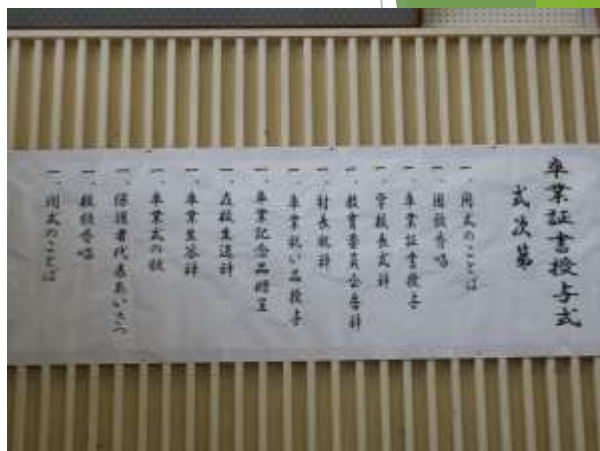 卒業証書授与式
式次第
一、開式のことば
一、国歌斉唱
一、卒業証書授与
一、学校長式辞
一、教育委員会告辞
一、村長祝辞
一、卒業祝い品授与
一、卒業記念品贈呈
一、在校生送辞
一、卒業生答辞
一、卒業式の歌
一、保護者代表あいさつ
一、校歌斉唱
一、閉式のことば